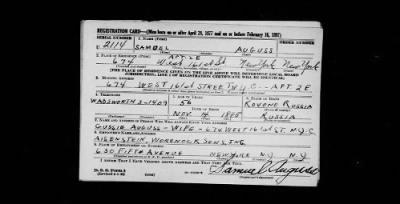 REGISTRATION CARD—(Men born on or after April 28, 1877 and on or before February 16, 1897)
SERIAL NUMBER 1. NAME (Print)
U 2114 SAMUEL AUGUSS
2. PLACE OF RESIDENCE (Print) APT 2E
674 West 161 st New York New York
[THE PLACE OF RESIDENCE GIVEN ON THE LINE ABOVE WILL DETERMINE LOCAL BOARD
JURISDICTION; LINE 2 OF REGISTRATION CERTIFICATE WILL BE IDENTICAL]
3. MAILING ADDRESS
674 WEST 161st STREET N.Y.C - APT 2E
4. TELEPHONE 5. AGE IN YEARS 6. PLACE OF BIRTH
WADSWORTH 56 RUSSIA
NOV 14 1885 RUSSIA
7. NAME AND ADDRESS OF PERSON WHO WILL ALWAYS KNOW YOUR ADDRESS
GUSSIE AUGUSS - WIFE - 674 WEST 161 st ST N.Y.C
8. EMPLOYER'S NAME AND ADDRESS
9. PLACE OF EMPLOYMENT OR BUSINESS
630 FIFTH AVENUE NEW YORK N.Y. N.Y.
I AFFIRM THAT I HAVE VERIFIED ABOVE ANSWERS AND THAT THEY ARE TRUE.
D. S. S. Form 1
Samuel Auguss